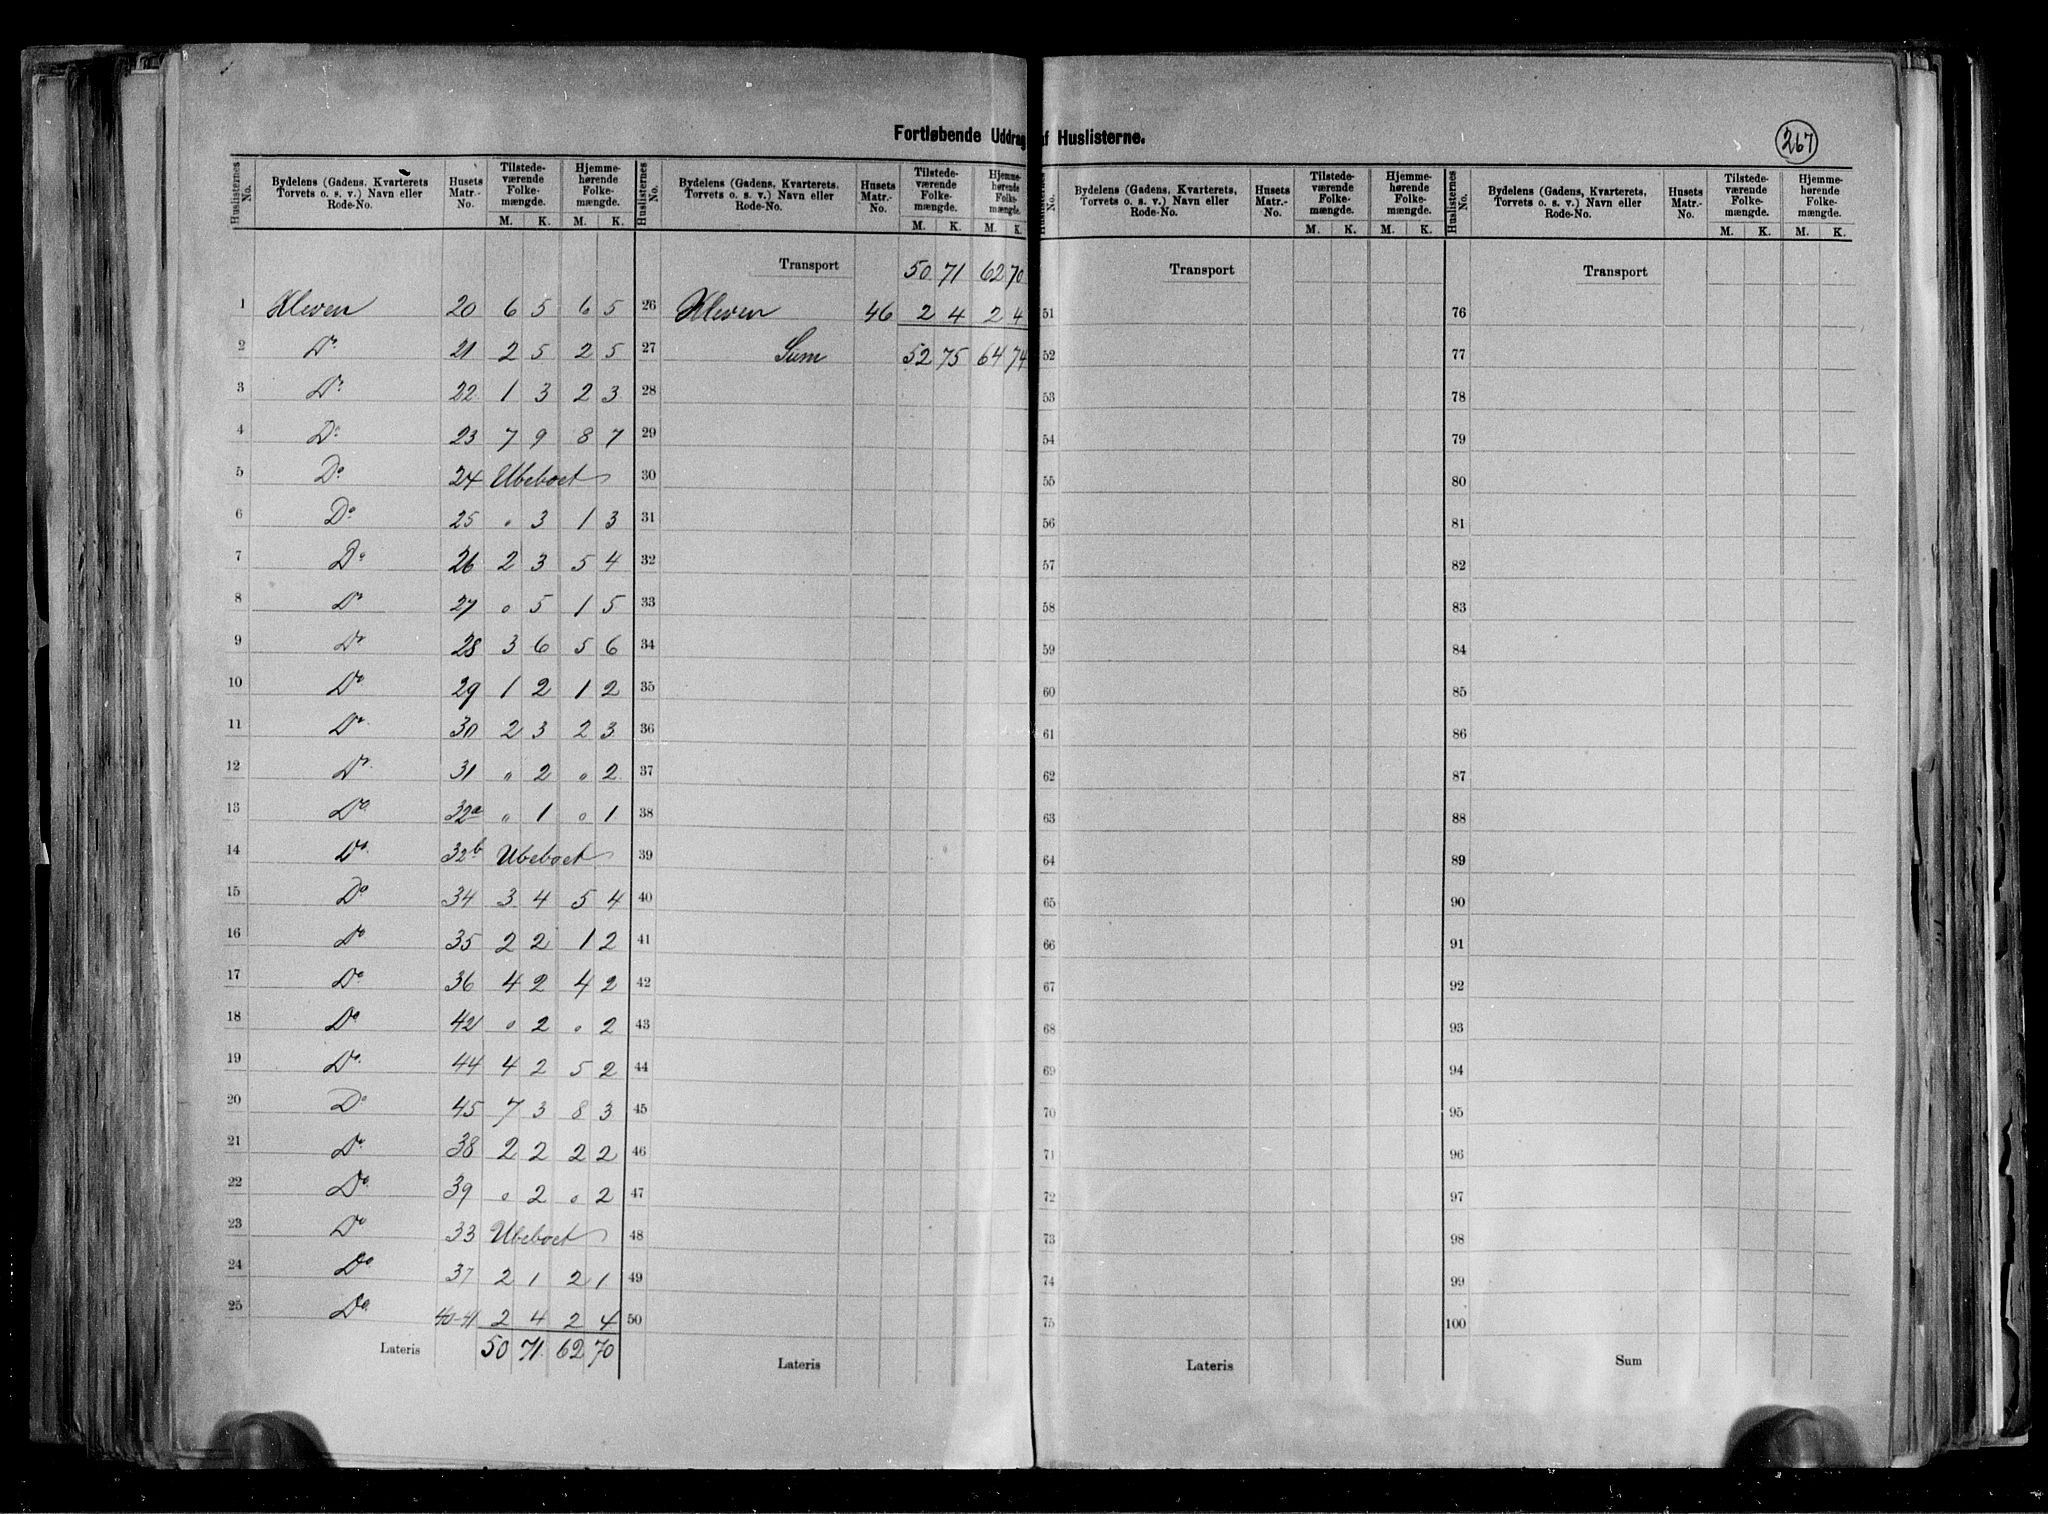 Fortløbende Uddrag af Huslisterne.
267
Huslisternes No. | Bydelens (Gadens, Kvarterets, Torvets o. s. v.) Navn eller Rode-No. | Husets Matr.-No. | Tilstedeværende Folkemængde. M. K. | Hjemmehørende Folkemængde. M. K.
1 Kleven 20 6 5 6 5
2 Do 21 2 5 2 5
3 Do 22 1 3 2 3
4 Do 23 7 9 8 7
5 Do 24 Ubeboet
6 Do 25 " 3 1 3
7 Do 26 2 3 5 4
8 Do 27 " 5 1 5
9 Do 28 3 6 5 6
10 Do 29 1 2 1 2
11 Do 30 2 3 2 3
12 Do 31 " 2 " 2
13 Do 32a " 1 " 1
14 Do 32b Ubeboet
15 Do 34 3 4 5 4
16 Do 35 2 2 1 2
17 Do 36 4 2 4 2
18 Do 42 " 2 " 2
19 Do 44 4 2 5 2
20 Do 45 7 3 8 3
21 Do 38 2 2 2 2
22 Do 39 " 2 " 2
23 Do 33 Ubeboet
24 Do 37 2 1 2 1
25 Do 40-41 2 4 2 4
Lateris 50 71 62 70
Huslisternes No. | Bydelens (Gadens, Kvarterets, Torvets o. s. v.) Navn eller Rode-No. | Husets Matr.-No. | Tilstedeværende Folkemængde. M. K. | Hjemmehørende Folkemængde. M. K.
Transport 50 71 62 70
26 Kleven 46 2 4 2 4
27 Sum 52 75 64 74
28
29
30
31
32
33
34
35
36
37
38
39
40
41
42
43
44
45
46
47
48
49
50
Lateris
Huslisternes No. | Bydelens (Gadens, Kvarterets, Torvets o. s. v.) Navn eller Rode-No. | Husets Matr.-No. | Tilstedeværende Folkemængde. M. K. | Hjemmehørende Folkemængde. M. K.
Transport
51
52
53
54
55
56
57
58
59
60
61
62
63
64
65
66
67
68
69
70
71
72
73
74
75
Lateris
Huslisternes No. | Bydelens (Gadens, Kvarterets, Torvets o. s. v.) Navn eller Rode-No. | Husets Matr.-No. | Tilstedeværende Folkemængde. M. K. | Hjemmehørende Folkemængde. M. K.
Transport
76
77
78
79
80
81
82
83
84
85
86
87
88
89
90
91
92
93
94
95
96
97
98
99
100
Sum